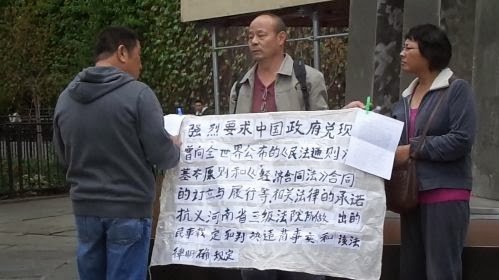 强烈要求中国政府兑现
曾向全世界公布的《民法通则》
基本原则和《经济合同法》合同
的订立与履行等相关法律的承诺
抗议河南省三级法院所做出的
民事裁定和判决违背事实和该法
律明确规定